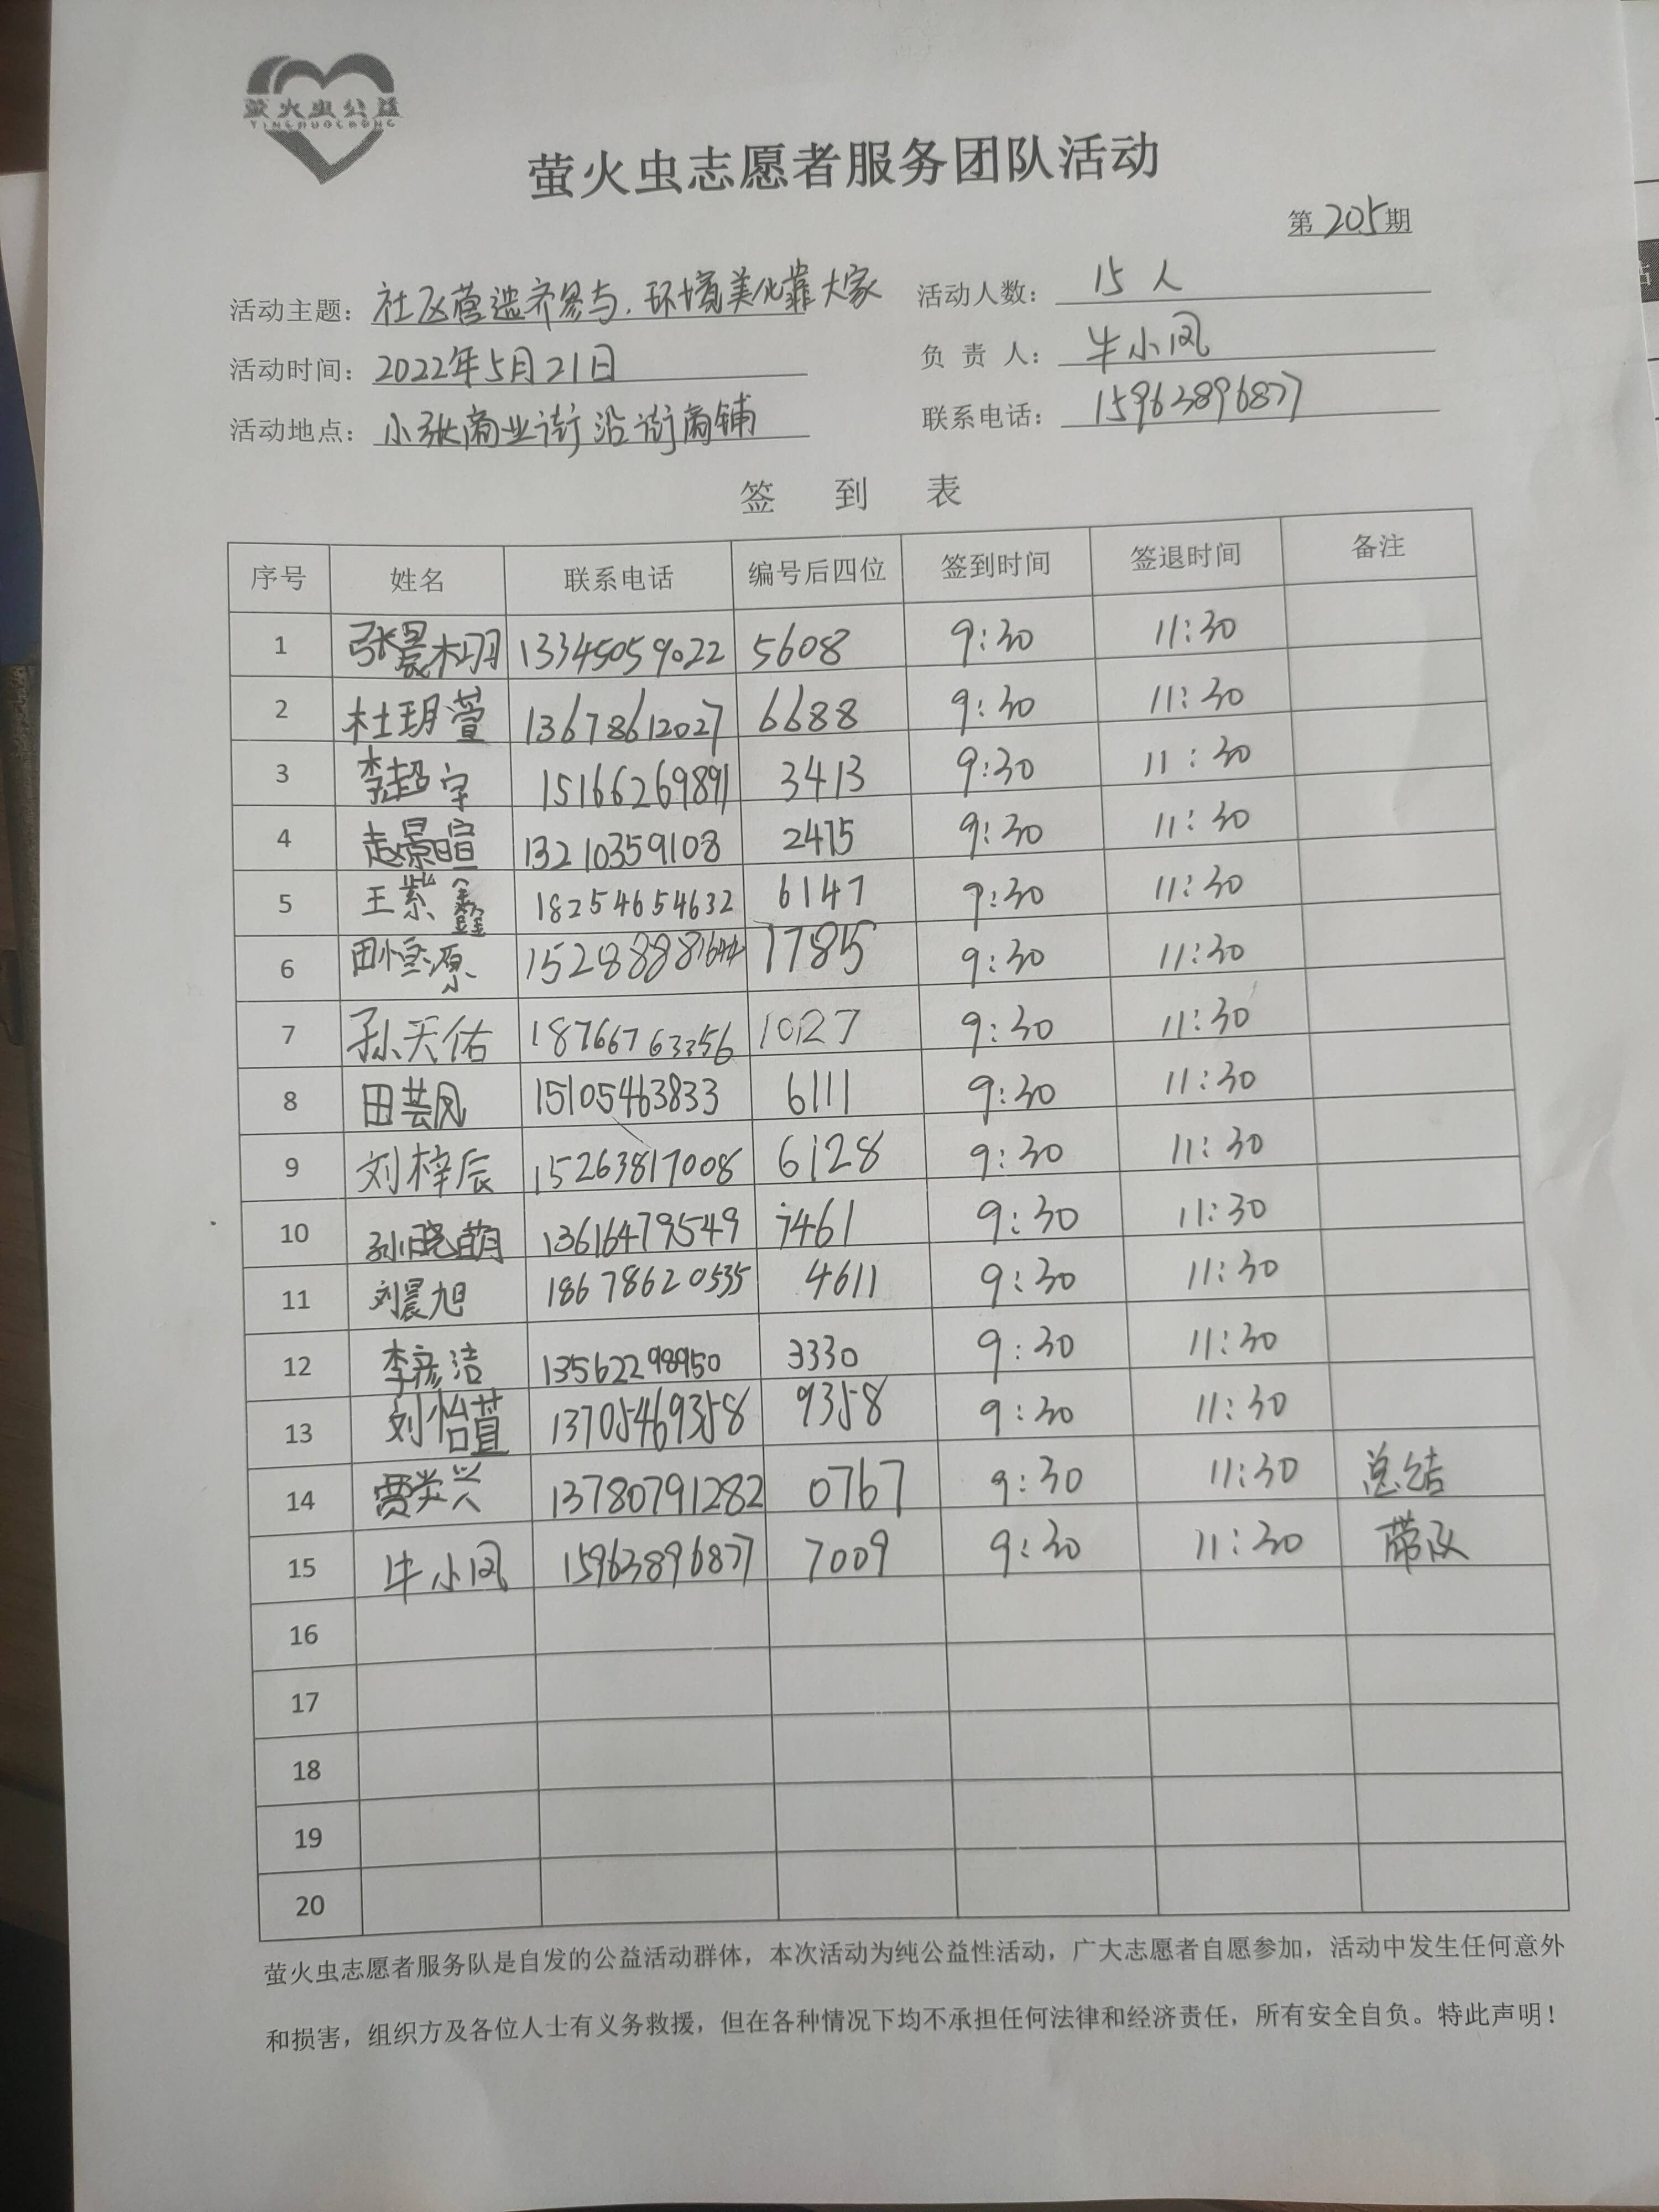 萤火虫公益
YINGHUOCHONG
萤火虫志愿者服务团队活动
第 205 期
活动主题：社区营造齐参与，环境美化靠大家 活动人数：15人
活动时间：2022年5月21日 负责人：牛小凤
活动地点：小张商业街沿街商铺 联系电话：15963896877
签到表
序号 姓名 联系电话 编号后四位 签到时间 签退时间 备注
1 张晨栩 13345059022 5608 9:30 11:30
2 杜玥萱 13678612027 6688 9:30 11:30
3 李超宇 15166269891 3413 9:30 11:30
4 赵景暄 13210359108 2475 9:30 11:30
5 王紫鑫 18254654632 6147 9:30 11:30
6 田恒源 1785 9:30 11:30
7 孙天佑 18766763356 1027 9:30 11:30
8 田芸凤 15105463833 6111 9:30 11:30
9 刘梓辰 15263817008 6128 9:30 11:30
10 孙晓萌 13616479549 7461 9:30 11:30
11 刘晨旭 18678620535 4611 9:30 11:30
12 李彦洁 13562298950 3330 9:30 11:30
13 刘怡萱 13705469358 9358 9:30 11:30
14 13780791282 0767 9:30 11:30 总结
15 牛小凤 15963896877 7009 9:30 11:30 带队
16
17
18
19
20
萤火虫志愿者服务队是自发的公益活动群体，本次活动为纯公益性活动，广大志愿者自愿参加，活动中发生任何意外
和损害，组织方及各位人士有义务救援，但在各种情况下均不承担任何法律和经济责任，所有安全自负。特此声明！